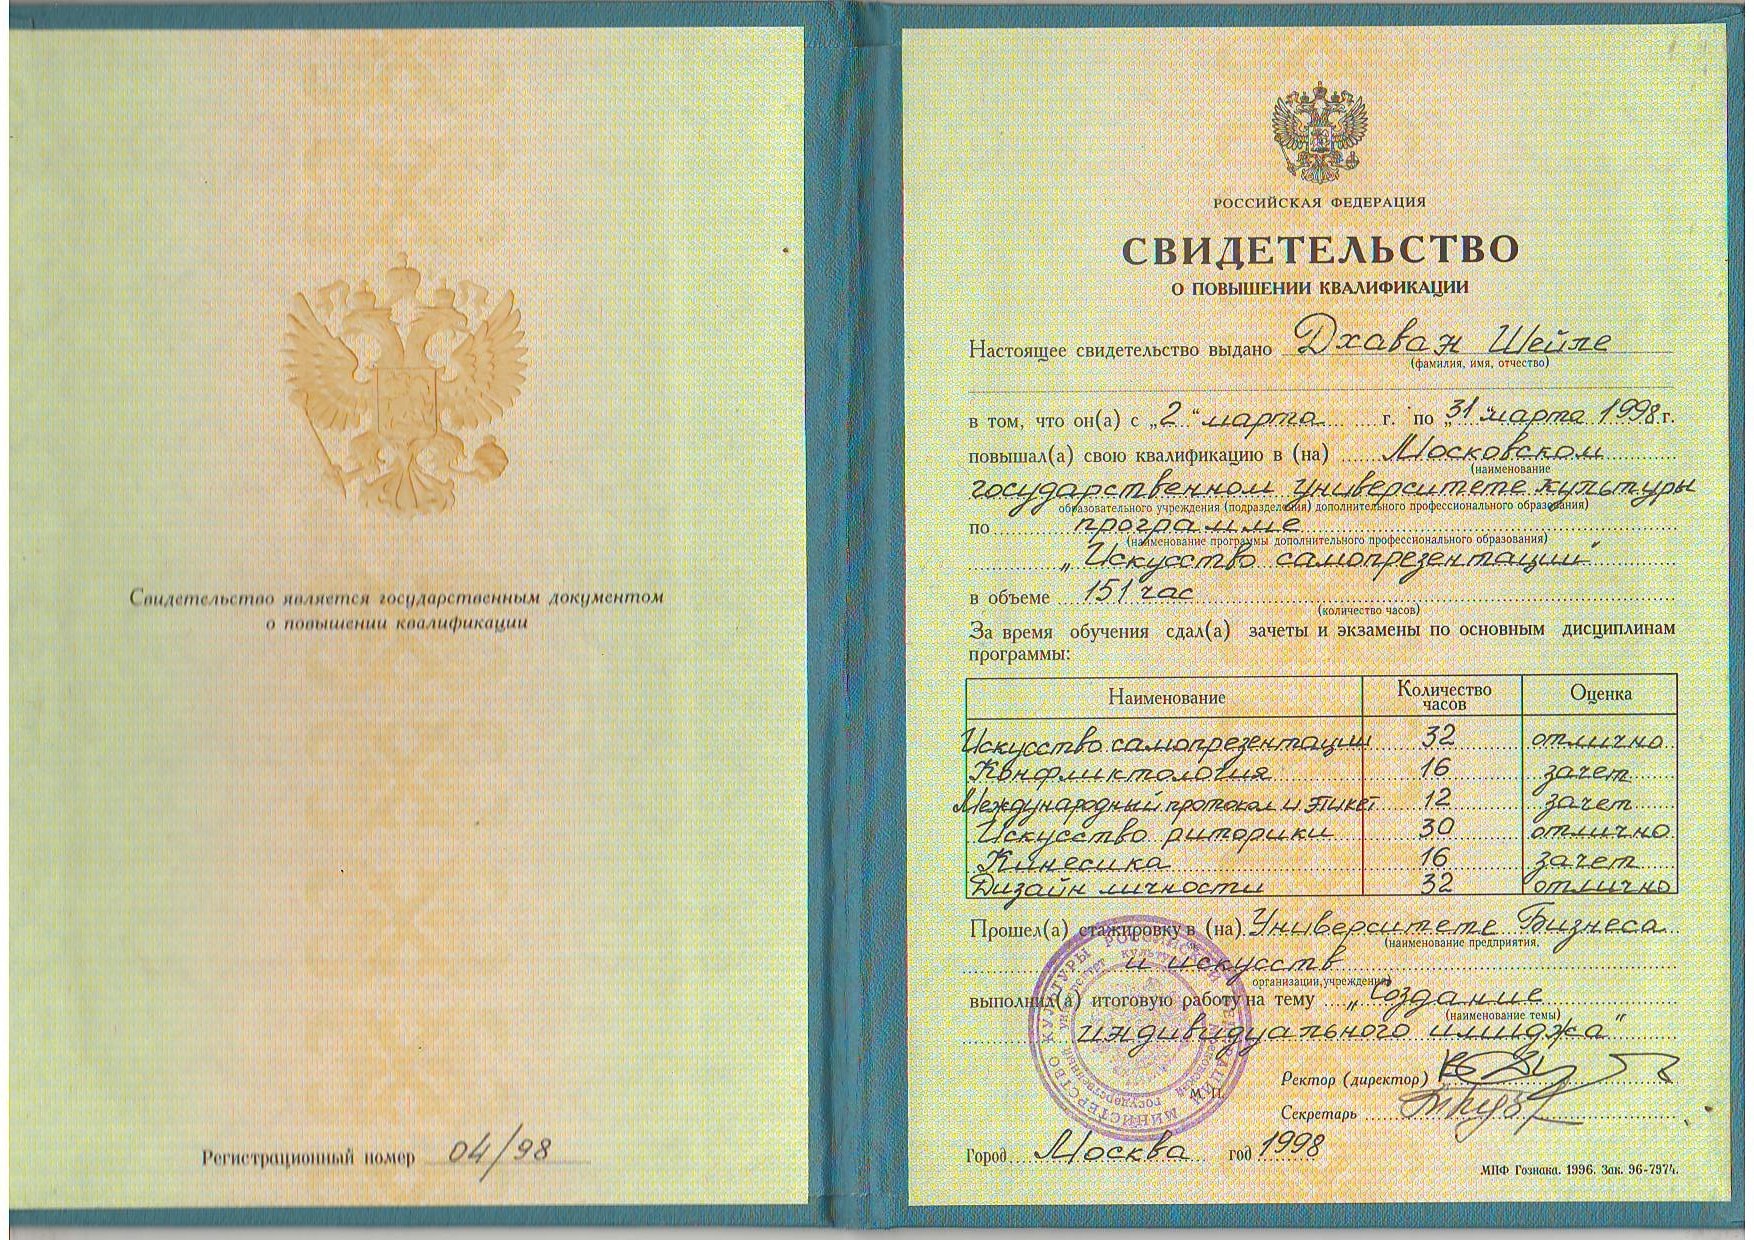 Свидетельство является государственным документом
о повышении квалификации
Регистрационный номер 04/98
РОССИЙСКАЯ ФЕДЕРАЦИЯ
СВИДЕТЕЛЬСТВО
О ПОВЫШЕНИИ КВАЛИФИКАЦИИ
Настоящее свидетельство выдано Дхаван Шейле
(фамилия, имя, отчество)
в том, что он(а) с „2“ марта г. по „31“ марта 1998 г.
повышал(а) свою квалификацию в (на) Московском
(наименование
государственном университете культуры
образовательного учреждения (подразделения) дополнительного профессионального образования)
по программе
(наименование программы дополнительного профессионального образования)
„Искусство самопрезентации"
в объеме 151 час
(количество часов)
За время обучения сдал(а) зачеты и экзамены по основным дисциплинам
программы:
Наименование Количество часов Оценка
Искусство самопрезентации 32 отлично
Конфликтология 16 зачет
Международный протокол и этикет 12 зачет
Искусство риторики 30 отлично
Кинесика 16 зачет
Дизайн личности 32 отлично
Прошел(а) стажировку в (на) Университете Бизнеса
(наименование предприятия,
и искусств
организации, учреждения)
выполнил(а) итоговую работу на тему „Создание
(наименование темы)
индивидуального имиджа"
Ректор (директор)
М. П.
Секретарь
Город Москва год 1998
МПФ Гознака. 1996. Зак. 96-7974.
МИНИСТЕРСТВО КУЛЬТУРЫ РОССИЙСКОЙ ФЕДЕРАЦИИ